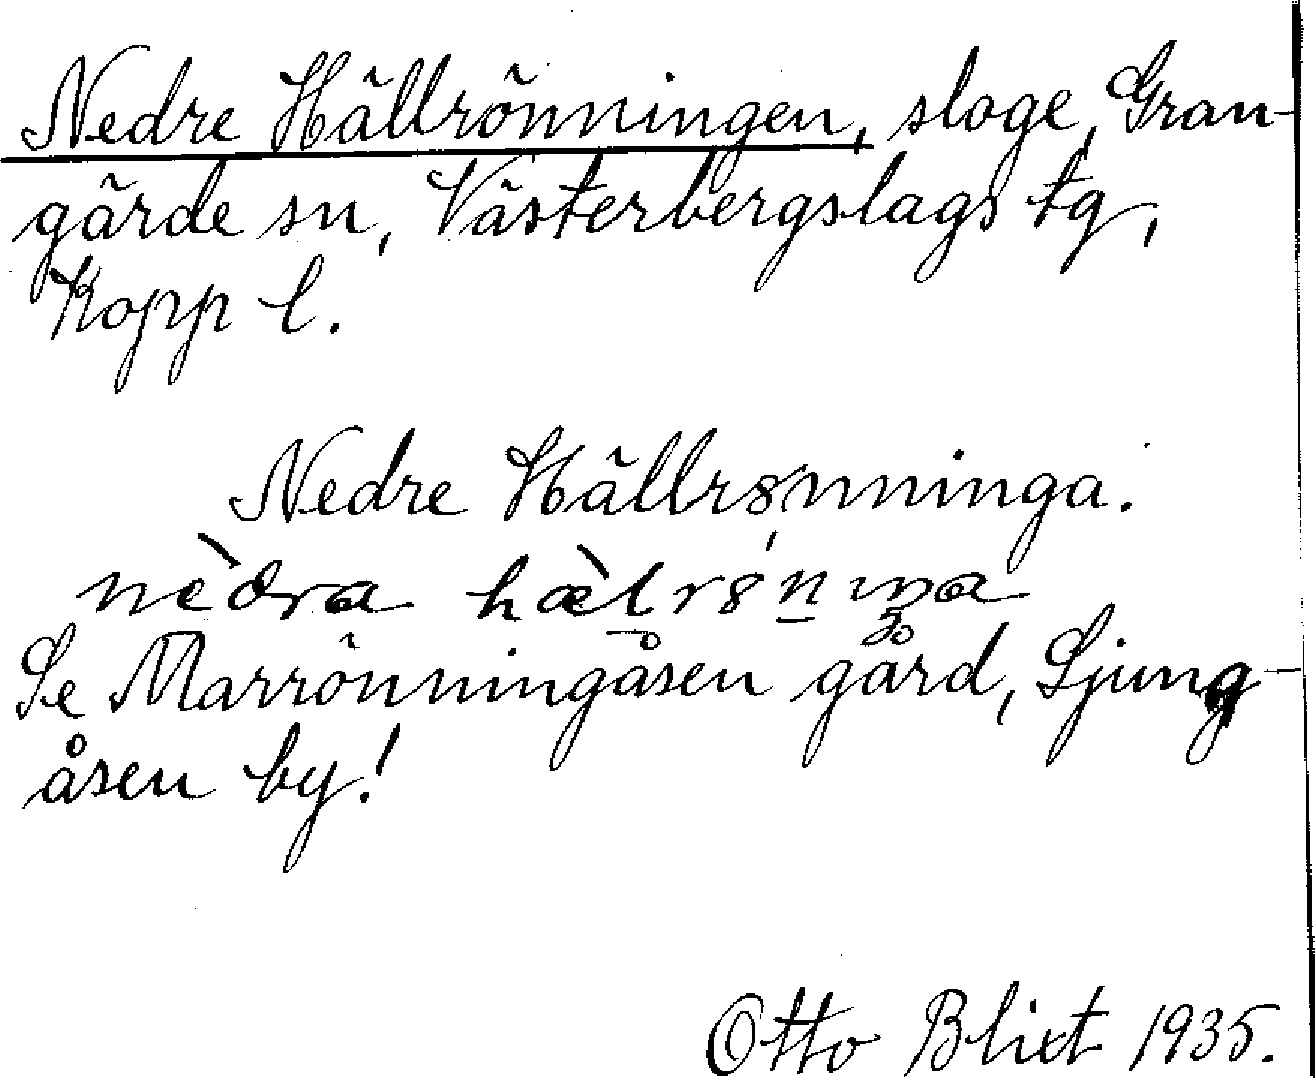 Nedre Hällrönningen, sloge, Gran-
gärde sn, Västerbergslags tg,
Kopp l.
Nedre Hällrönninga.
Se Marrönningåsen gård, Ljung-
åsen by!
Otto Blixt 1935.